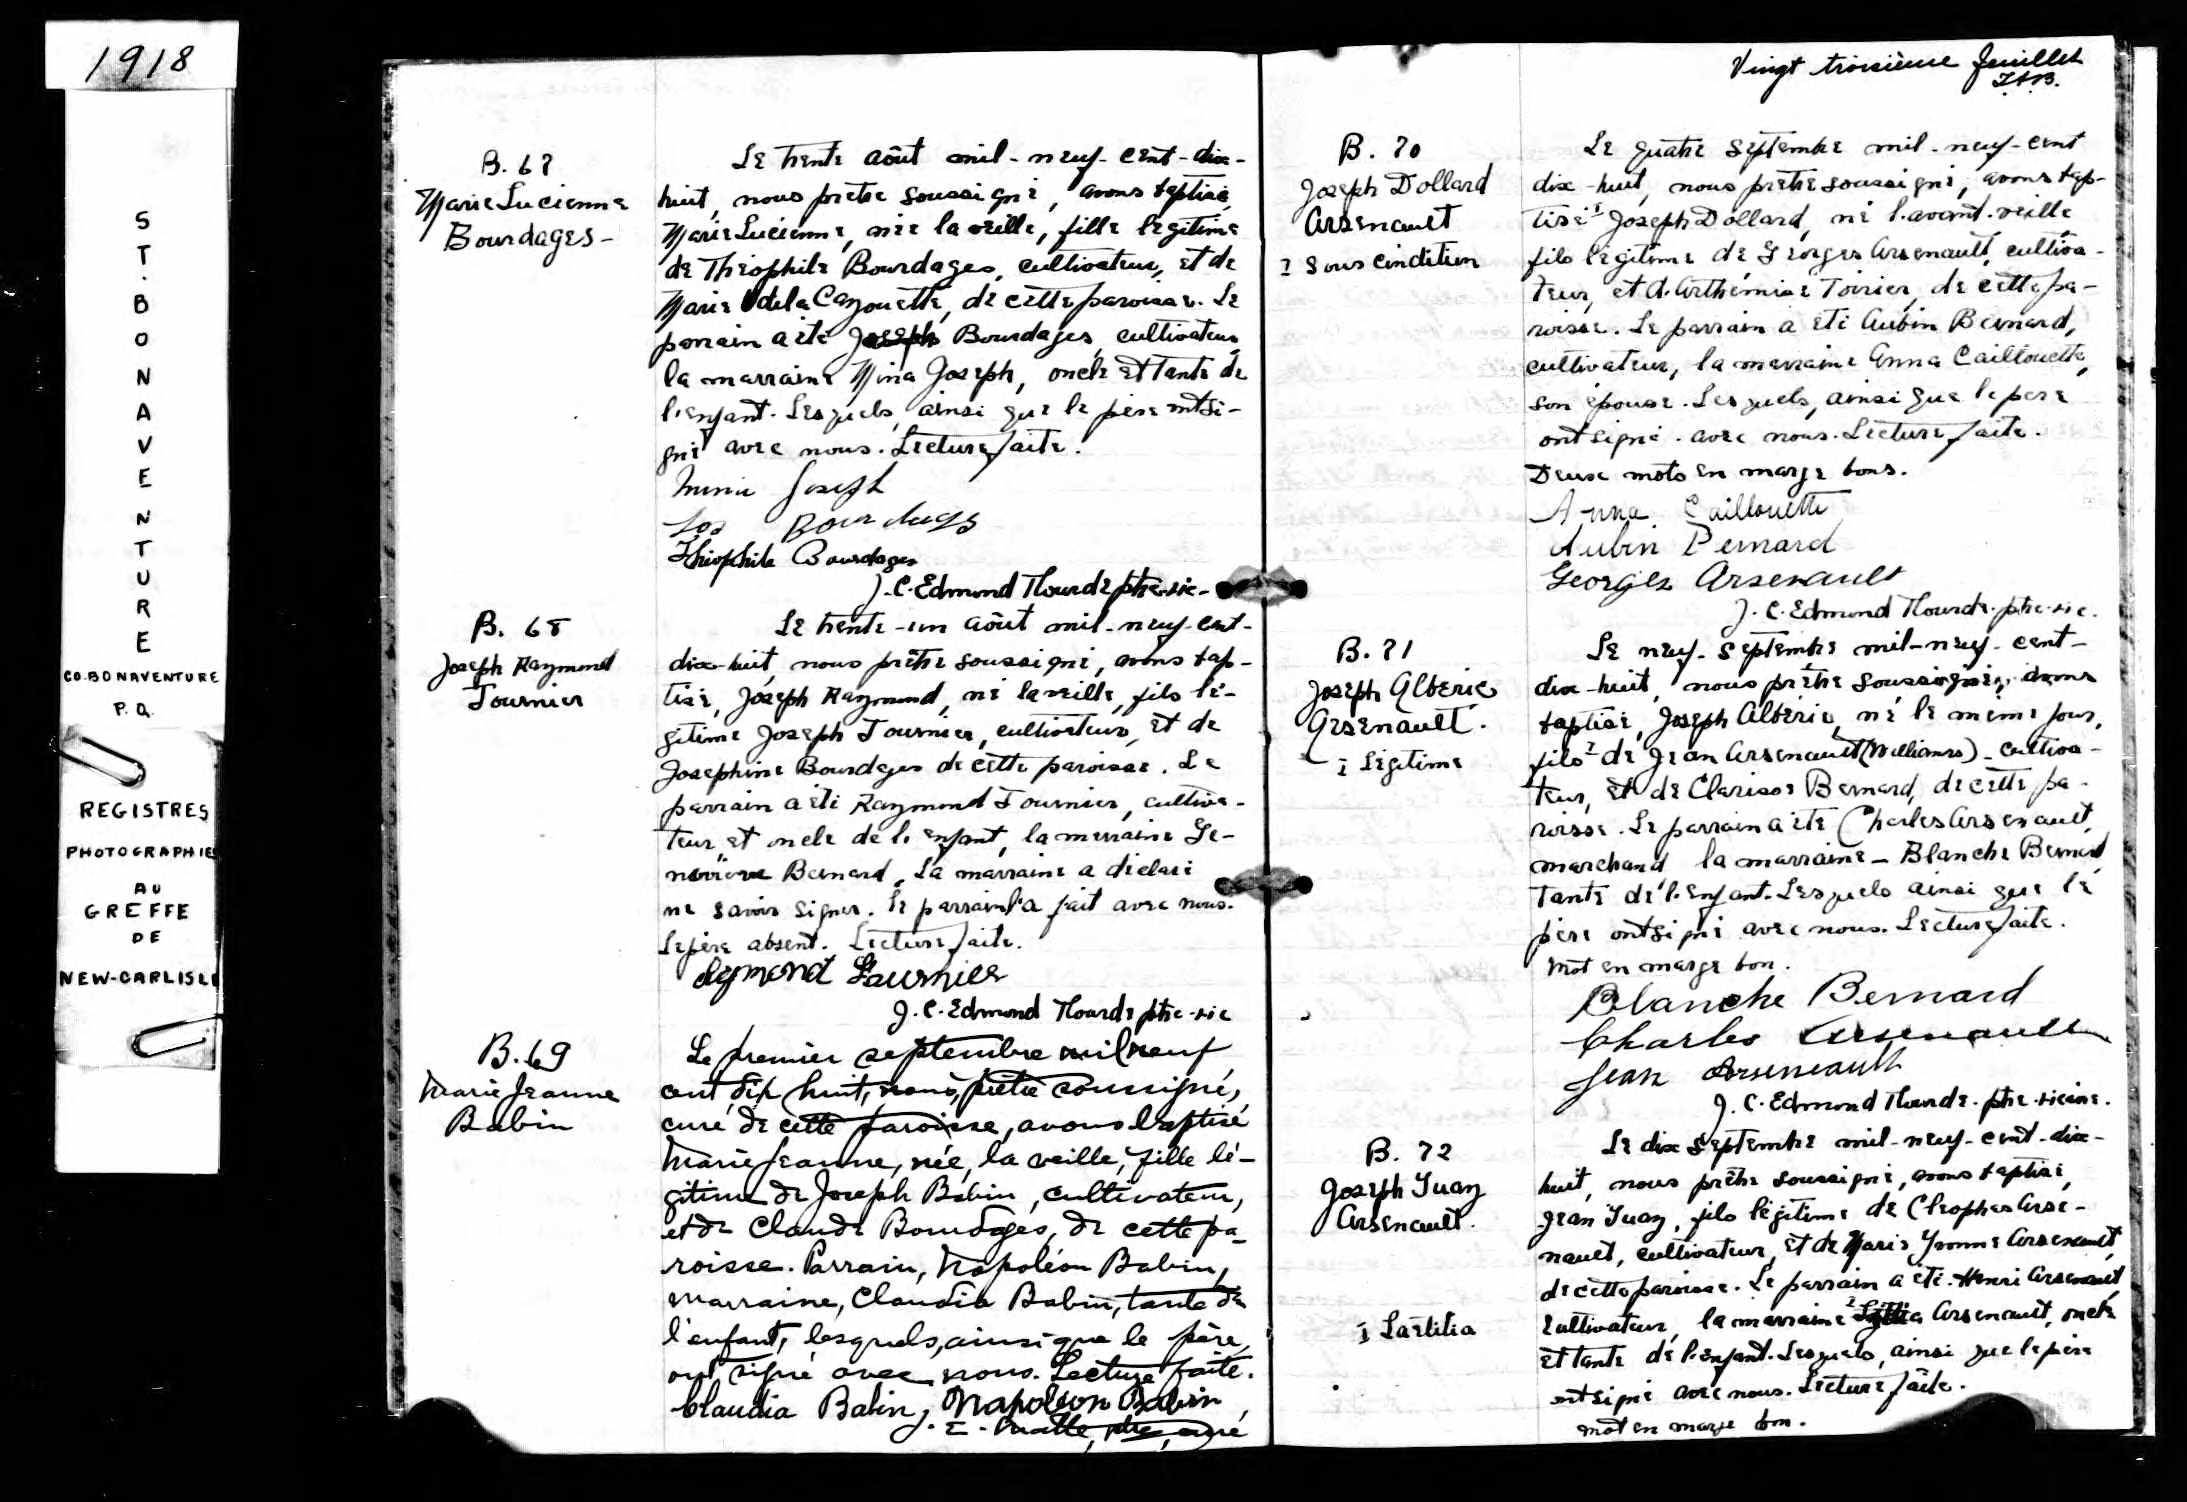 1918
ST. BONAVENTURE
CO. BONAVENTURE
P.Q.
REGISTRES
PHOTOGRAPHIE
AU
GREFFE
DE
NEW-CARLISLE
B. 67
Marie Lucienne
Bourdages-
Le trente août mil-neuf-cent-dix-
huit, nous prêtre soussigné, avons baptisé
Marie Lucienne, née la veille, fille légitime
de Théophile Bourdages, cultivateur, et de
Marie de la Cazouette, de cette paroisse. Le
parrain a été Joseph Bourdages, cultivateur,
la marraine Mina Joseph, oncle et tante de
l'enfant. Lesquels, ainsi que le père ont si-
gné avec nous. Lecture faite.
Minie Joseph
Jos Bourdages
Théophile Bourdages
J.-C. Edmond Plourde ptre-vic-
B. 68
Joseph Raymond
Fournier
Le trente-un août mil-neuf-cent-
dix-huit, nous prêtre soussigné, avons bap-
tisé, Joseph Raymond, né la veille, fils lé-
gitime Joseph Fournier, cultivateur, et de
Josephine Bourdages de cette paroisse. Le
parrain a été Raymond Fournier, cultiva-
teur et oncle de l'enfant, la marraine Ge-
neviève Bernard. La marraine a déclaré
ne savoir signer. le parrain l'a fait avec nous.
Le père absent. Lecture faite.
Fournier
J. C. Edmond Plourde ptre-vic
B. 69
Marie Jeanne
Babin
Le premier septembre mil neuf
cent dix huit, nous, prêtre soussigné,
curé de cette paroisse, avons baptisé
Marie Jeanne, née, la veille, fille lé-
gitime de Joseph Babin, cultivateur,
et de Claude Bourdages, de cette pa-
roisse. Parrain, Napoléon Babin,
marraine, Claudia Babin, tante de
l'enfant, lesquels, ainsi que le père,
ont signé avec nous. Lecture faite.
Claudia Babin, Napoleon Babin,
J. E. Matte, ptre, curé
Vingt troisième feuillet
J.A.B.
B. 70
Joseph Dollard
Arsenault
1 sous condition
Le quatre septembre mil-neuf-cent
dix-huit, nous prêtre soussigné, avons bap-
tisé 1 Joseph Dollard, né l'avant-veille
fils légitime de Georges Arsenault, cultiva-
teur, et d'Arthémise Poirier, de cette pa-
roisse. Le parrain a été Aubin Bernard,
cultivateur, la marraine Anna Caillouette,
son épouse. Lesquels, ainsi que le père
ont signé avec nous. Lecture faite.
Deux mots en marge bons.
Anna Caillouette
Aubin Bernard
Georges Arsenault
J. C. Edmond Plourde. ptre-vic.
B. 71
Joseph Albéric
Arsenault.
1 Légitime
Le neuf-septembre mil-neuf-cent-
dix-huit, nous prêtre soussigné, avons
baptisé, Joseph Albéric, né le même jour,
fils 1 de Jean Arsenault (Williams) - cultiva-
teur, et de Clarisse Bernard, de cette pa-
roisse. Le parrain a été Charles Arsenault,
marchand la marraine - Blanche Bernard,
tante de l'enfant. Lesquels ainsi que le
père ont signé avec nous. Lecture faite.
mot en marge bon.
Blanche Bernard
Charles Arsenault
Jean Arseneault
J. C. Edmond Plourde. ptre-vicaire.
B. 72
Joseph Yuay
Arsenault.
1 Laetitia
Le dix septembre mil-neuf-cent-dix-
huit, nous prêtre soussigné, avons baptisé,
Jean Yuay, fils légitime de Cléophas Arse-
nault, cultivateur, et de Marie Yvonne Arsenault,
de cette paroisse. Le parrain a été Henri Arsenault,
cultivateur, la marraine 1 Arsenault, oncle
et tante de l'enfant. Lesquels, ainsi que le père
ont signé avec nous. Lecture faite.
mot en marge bon.